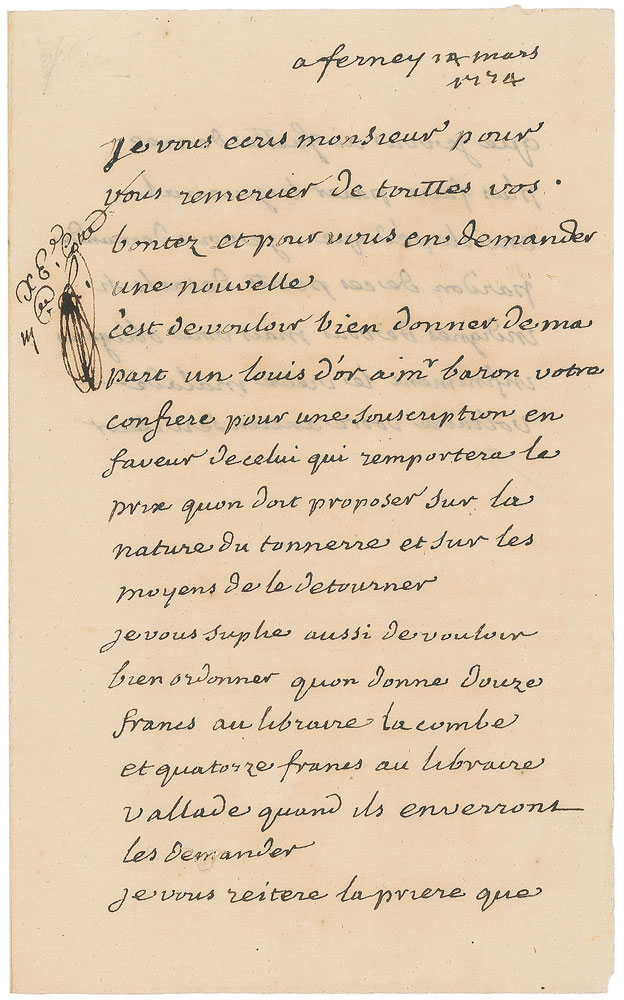 a ferney 14 mars
1774
je vous ecris monsieur pour
vous remercier de touttes vos
bontez et pour vous en demander
une nouvelle
c'est de vouloir bien donner de ma
part un louis d'or a mr baron votre
confrere pour une souscription en
faveur de celui qui remportera le
prix quon doit proposer sur la
nature du tonnerre et sur les
moyens de le detourner
je vous suplie aussi de vouloir
bien ordonner quon donne douze
francs au libraire lacombe
et quatorze francs au libraire
vallade quand ils enverront
les demander
je vous reitere la priere que